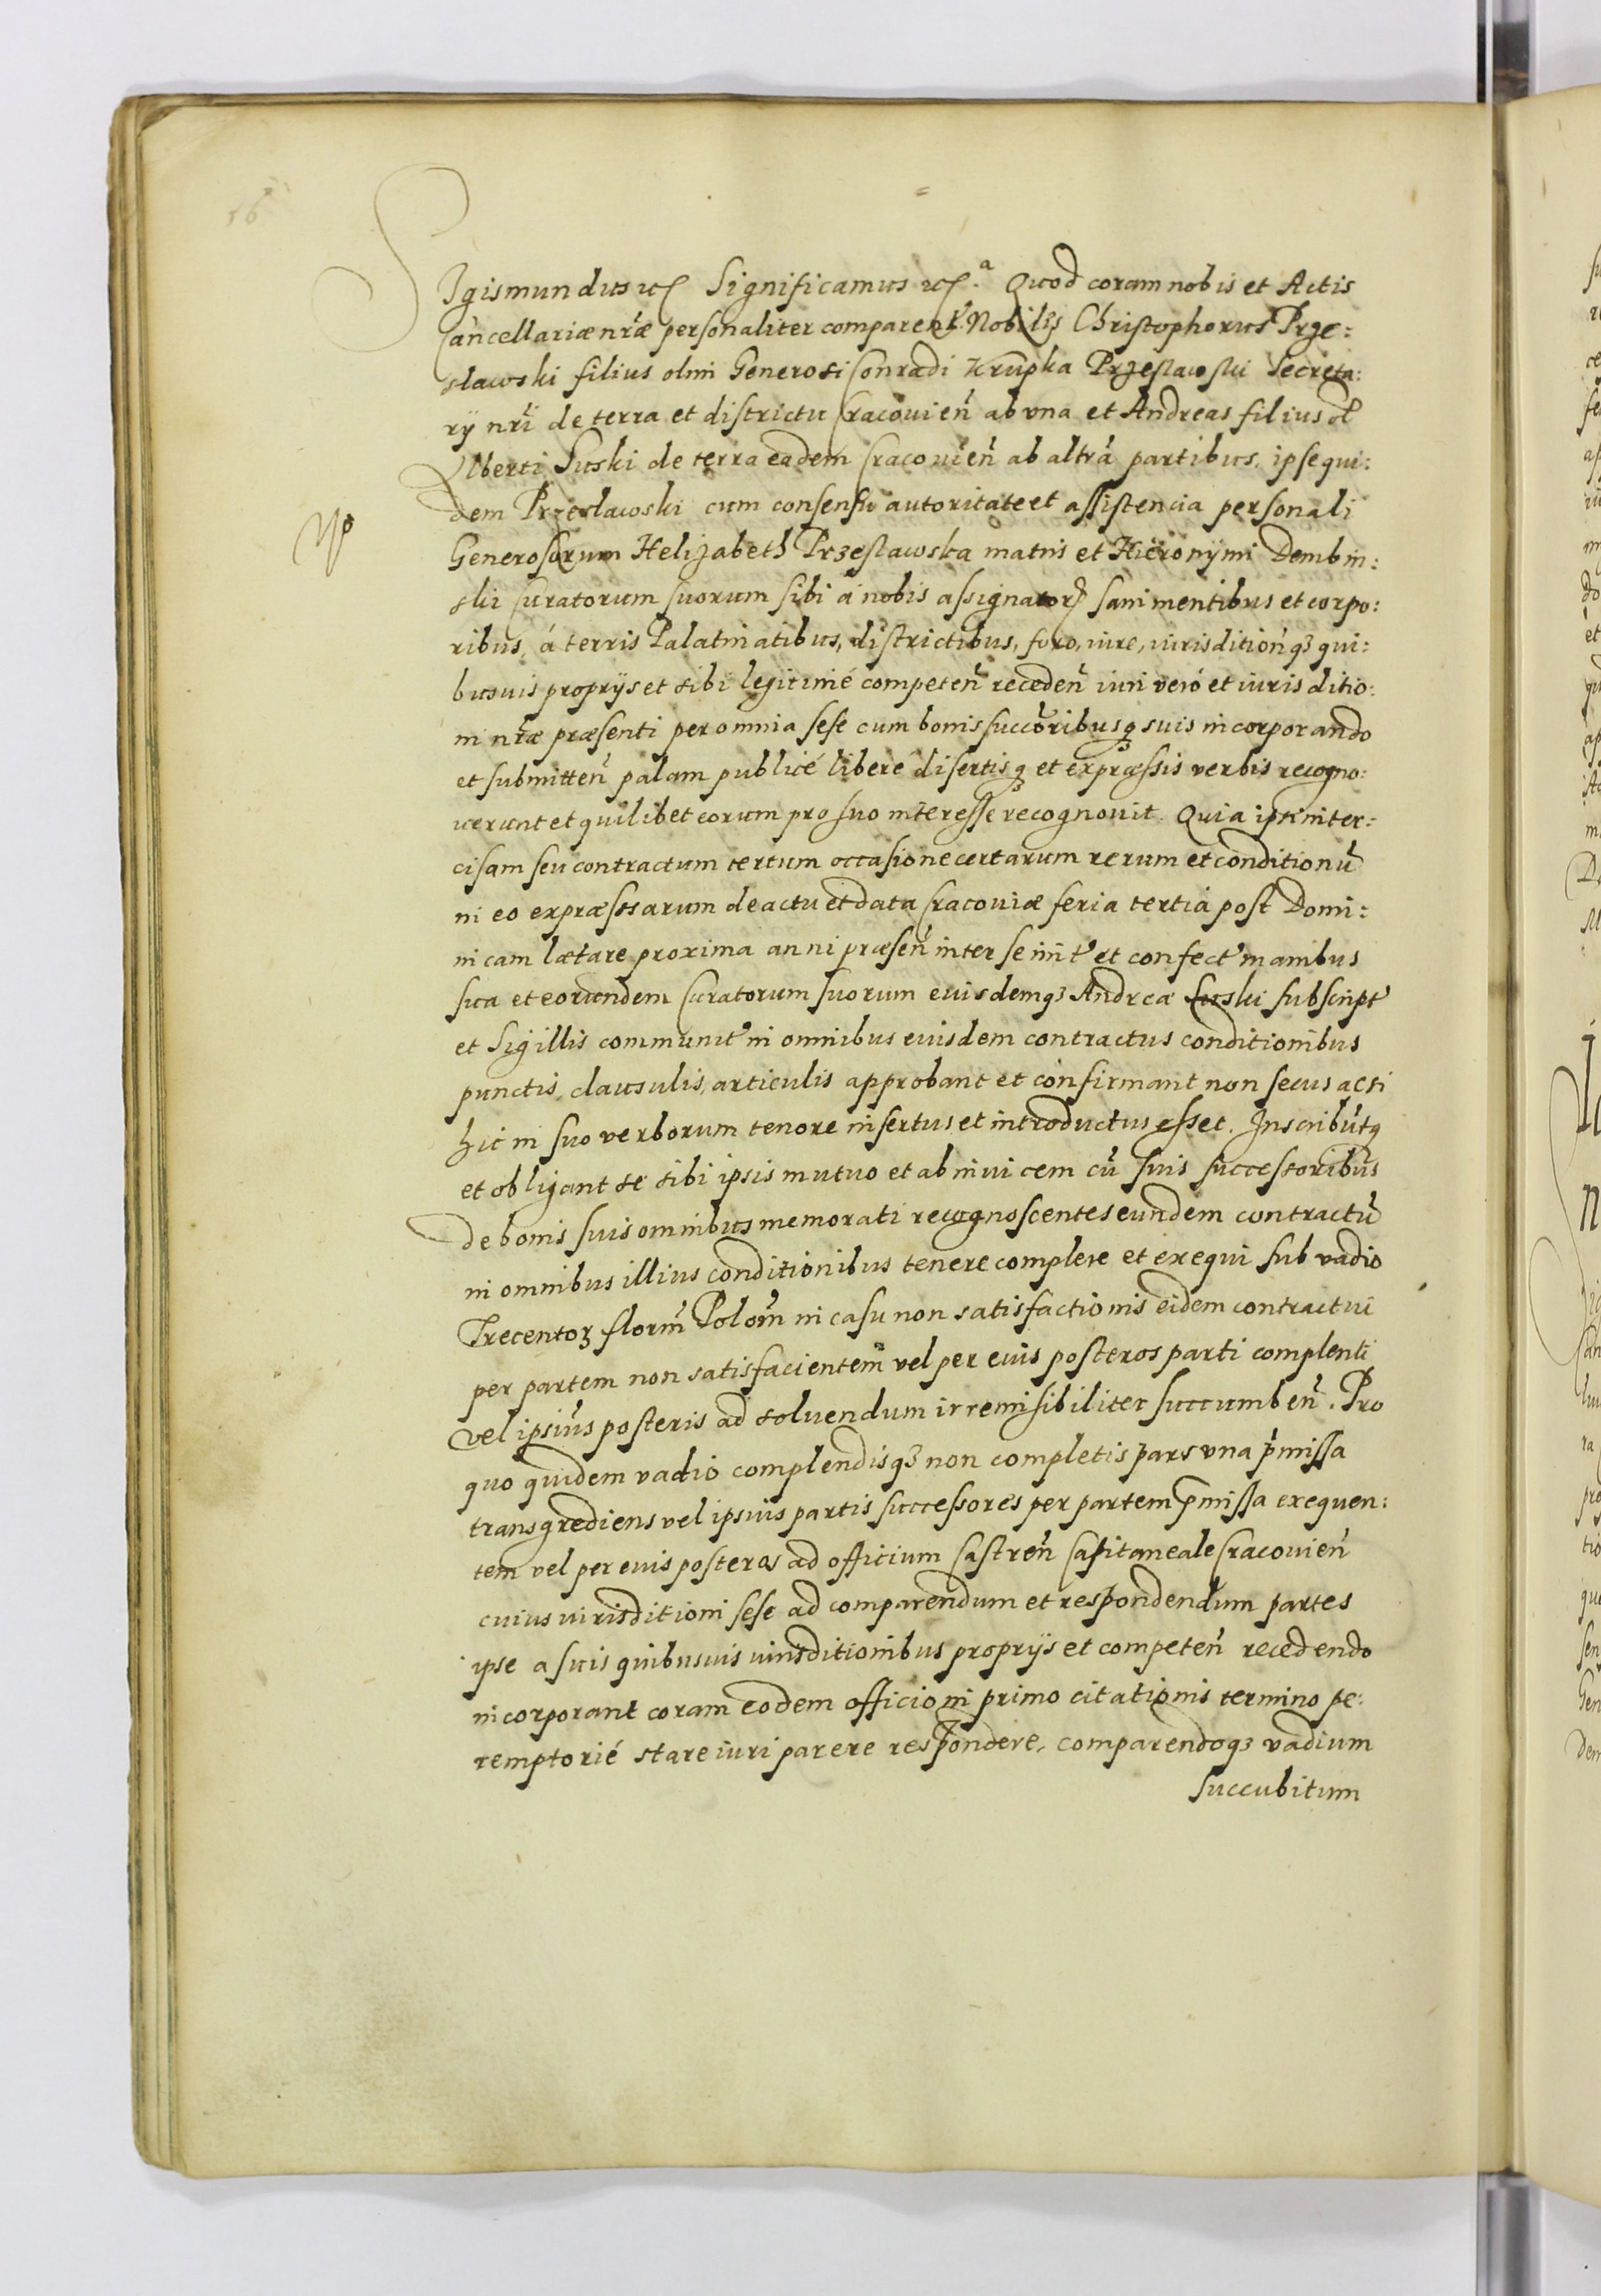 56
SIgismundus etc Significamus etc.ª Quod coram nobis et Actis
Cancellariæ nr̃æ personaliter comparen̄t Nobiles Christophorus Prze:
sławski filius olim Generosi Conradi Krupka Przesławski Secreta:
rÿ nr̃i de terra et districtu Cracouien̄ ab vna et Andreas filius ol̃
Alberti Suski de terra eadem Cracouien̄ ab altrá partibus, ipse qui:
dem Przesławski cum consensu autoritate et assistencia personali
Generosorum Helizabeth Przesławska matris et Hieronÿmi Dembin:
ski Curatorum suorum sibi á nobis assignator̨ sani mentibus et corpo:
ribus, á terris Palatinatibus, districtibus, foro, iure, iurisdition̄q3 qui:
busuis proprÿs et sibi legitimé competen̄ receden̄ iuri veró et iurisditio:
ni nr̃æ præsenti per omnia sese cum bonis succōribusq3 suis incorporando
et submitten̄ palam publicé liberé disertisq3 et expræssis verbis recogno:
uerunt et quilibet eorum pro suo interesse recognouit. Quia ipsi inter:
cisam seu contractum certum occasione certarum rerum et conditionū
in eo expræssarum de actu et data Cracouiæ feria tertia post Domi:
nicam lætare proxima anni præsen̄ inter se init̃ et confect̃ manibus
sua et eorundem Curatorum suorum eiusdemq3 Andreæ Suski subscript̃
et Sigillis communit̃ in omnibus eiusdem contractus conditionibus
punctis, clausulis, articulis approbant et confirmant non secus ac si
hic in suo verborum tenore insertus et introductus esset. Inscribūtq3
et obligant se sibi ipsis mutuo et ab inuicem cū suis successoribus
de bonis suis omnibus memorati recognoscentes eundem contractū
in omnibus illius conditionibus tenere complere et exequi sub vadio
Trecentor3 florm̃ Polom̃ in casu non satisfactionis eidem contractui
per partem non satisfacientem vel per euis posteros parti complenti
vel ipsius posteris ad soluendum irremisibiliter succumben̄. Pro
quo quidem vadio complendisq3 non completis pars vna p̄missa
transgrediens vel ipsius partis successores per partem p̄missa exequen:
tem vel per euis posteros ad officium Castren̄ Capitaneale Cracouien̄
cuius iurisditioni sese ad comparendum et respondendum partes
ipse a suis quibusuis iurisditionibus proprÿs et competen̄ recedendo
incorporant coram eodem officio in primo citationis termino pe:
remptorié stare iuri parere respondere, comparendoq3 vadium
succubitum